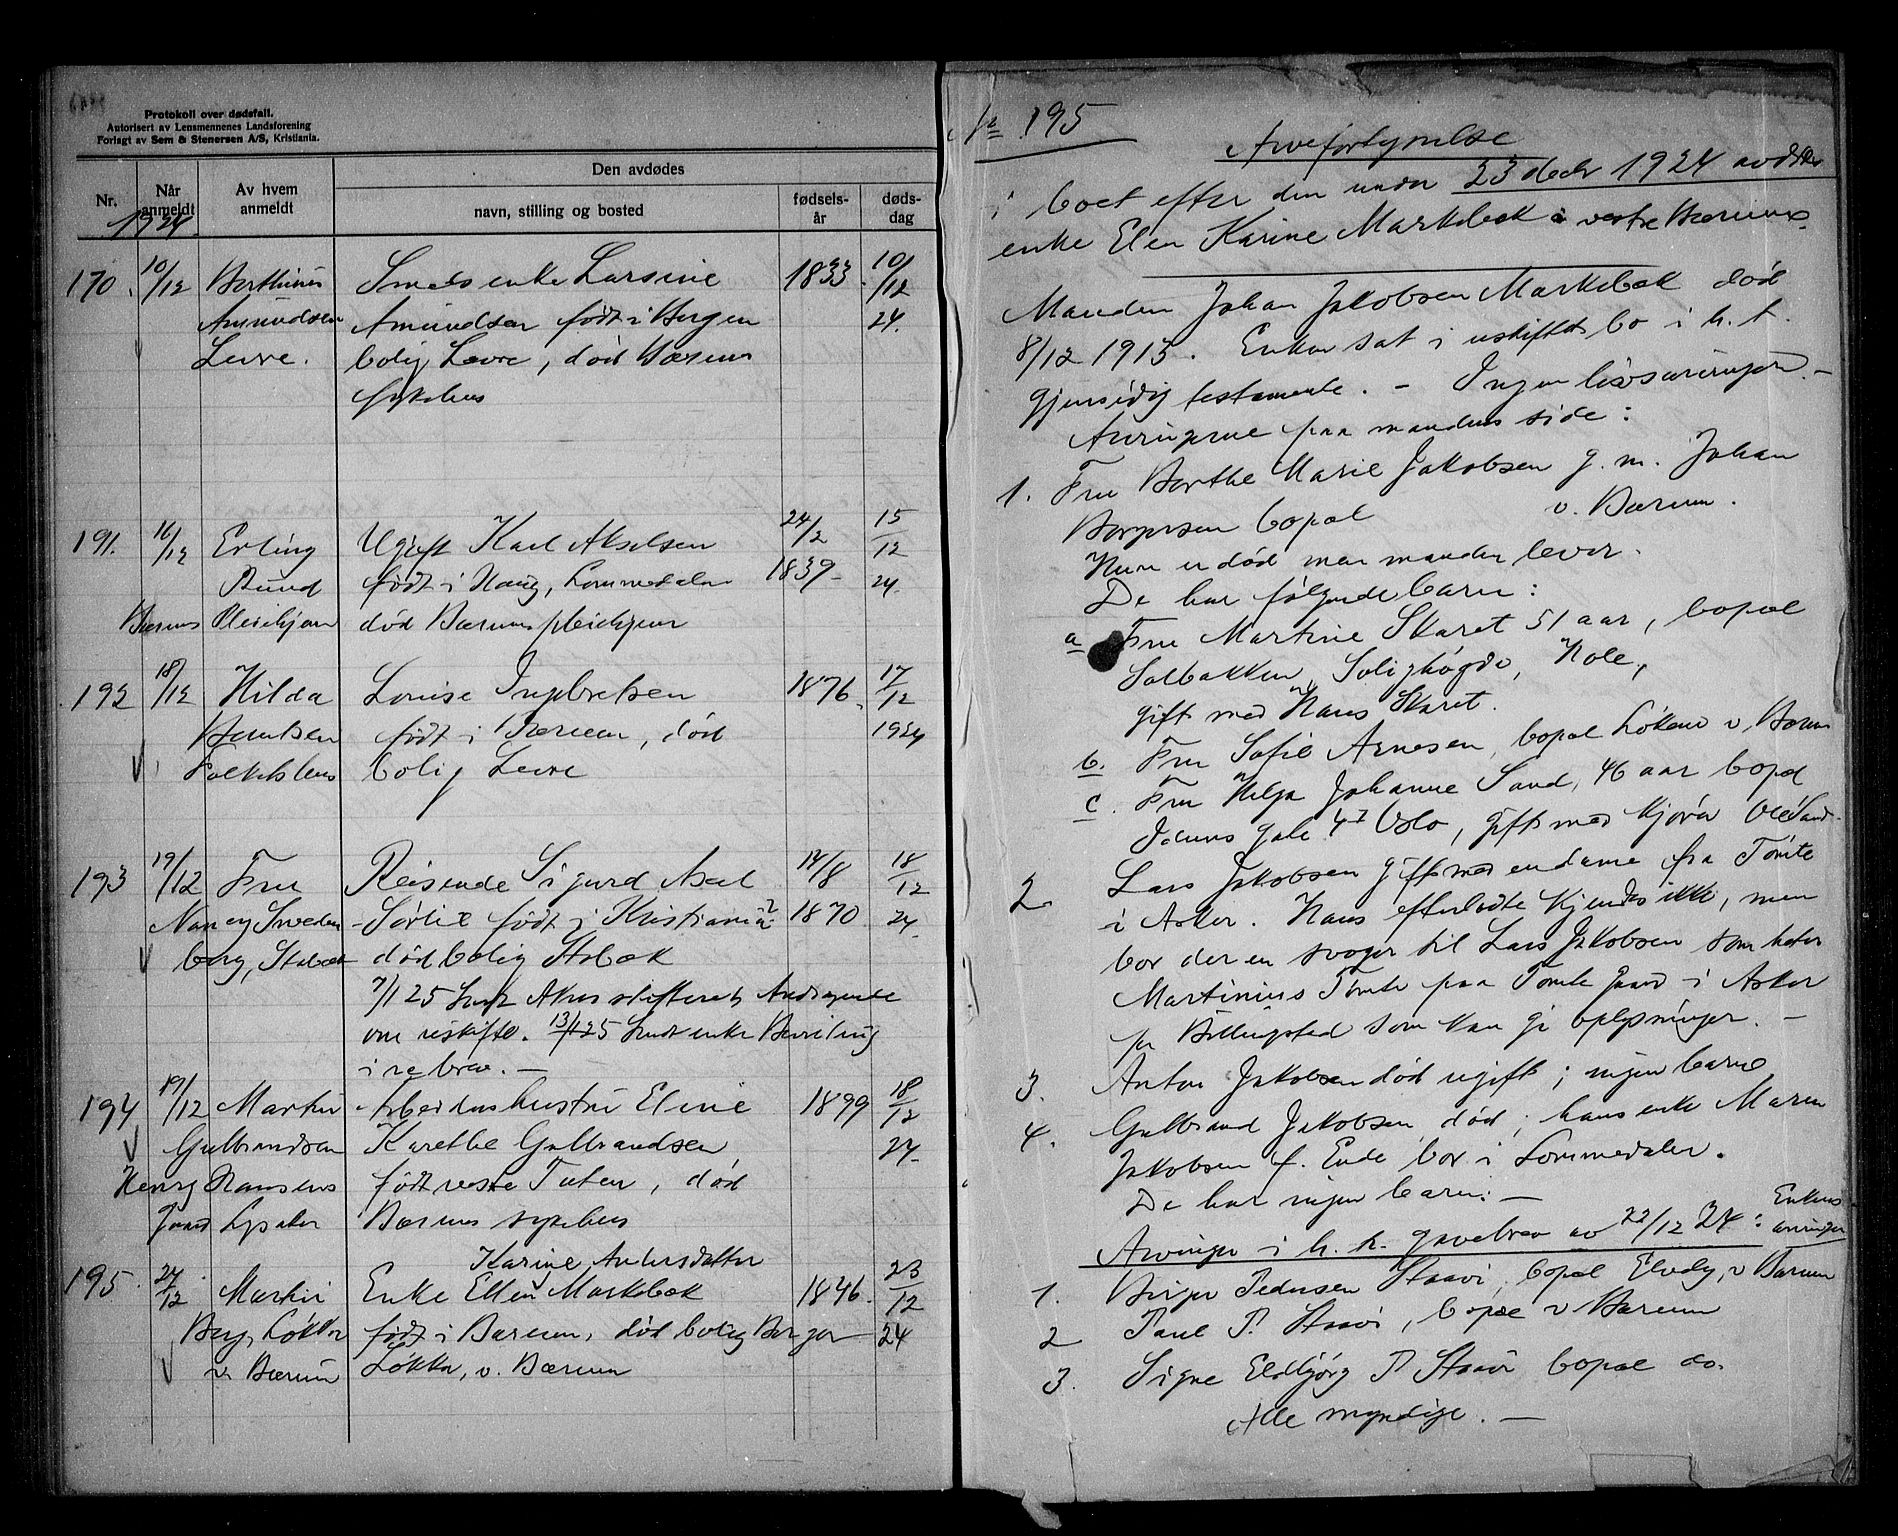 Protokoll over dødsfall.
Autorisert av Lensmennenes Landsforening
Forlagt av Sem & Stenersen A/S, Kristiania.
Nr.
Når anmeldt
Av hvem anmeldt
Den avdødes
navn, stilling og bosted
fødsels-år
døds-dag
1924
170. 10/12 Berthinus Smedsenke Larsine 1833. 10/12
Amundsen Amundsen født i Bergen 24.
Levre. bolig Levre, død Bærums
sykehus
191. 16/12 Erling Ugift Karl Akselsen 24/2 15/12
Rund født i Haug, Lommedalen 1839 24.
Bærums Pleiehjem død Bærums pleiehjem
192 18/12 Hilda Louise Ingebretsen 1876. 17/12
Berntsen født i Bærum, død 1924
bolig Levre
193 19/12 Fru Reisende Sigurd Axel 14/8 18/12
Nancy Sweden- Sørlie født i Kristiania 1870 24.
borg, Stabæk død bolig Stabæk
7/1 25 Akers skifterett Andragende
om uskifte. 13/1 25 Sendt enken Bevilling
i re brev. —
194 19/12 Martin Arbeidshustru Eline 1899 18/12
Gulbrandsen Karethe Gulbrandsen, 24.
Henry Hansens født vestre Toten, død
Gaard Lysaker Bærums sykehus
Karine Andersdatter
195. 27/12 Martin Enke Ellen Markebæk 1846. 23/12
Berg, Løkka født i Bærum, død bolig Borger 24
v. Bærum Løkka, v. Bærum
No 195
Arveforhynelse
i boet efter den under 23 decbr 1924 avdøde
enke Elen Karine Markebæk i vestre Bærum.
Manden Johan Jakobsen Markebæk død
8/12 1913. Enken sat i uskiftet bo i h. t.
gjensidig testamente. — Ingen livsarvinger. —
Arvingerne paa mandens side:
1. Fru Berthe Marie Jakobsen g. m. Johan
Borgersen bopæl v. Bærum.
Hun er død men manden lever.
De har følgende barn:
a Fru Martine Skaret 51 aar, bopæl
Solbakken, Solighøgda, Hole,
gift med Hans Skaret.
b. Fru Sofie Arnesen, bopæl Løkene v. Bærum
c. Fru Helga Johanne Sand, 46 aar bopæl
Idunsgate 4 I Oslo, gift med Kjører Ole Sand.
2 Lars Jakobsen gift med en dame fra Tømte
i Asker. Hans efterladte kjendes ikke, men
bor der en svoger til Lars Jakobsen som heter
Martinius Tømte paa Tømte gaard i Asker
pr Billingstad som kan gi oplysninger. —
3. Anton Jakobsen død ugift; ingen barn
4. Gulbrand Jakobsen død; hans enke Maren
Jakobsen f. Ende bor i Lommedalen.
De har ingen barn. —
Arvinger i h. t. gavebrev av 22/12 24: Enkens arvinger
1. Birger Pedersen Staavi, bopæl v Bærum
2 Paul P. Staavi, bopæl v Bærum
3. Signe Eldbjørg P Staavi bopæl do.
Alle myndige. —